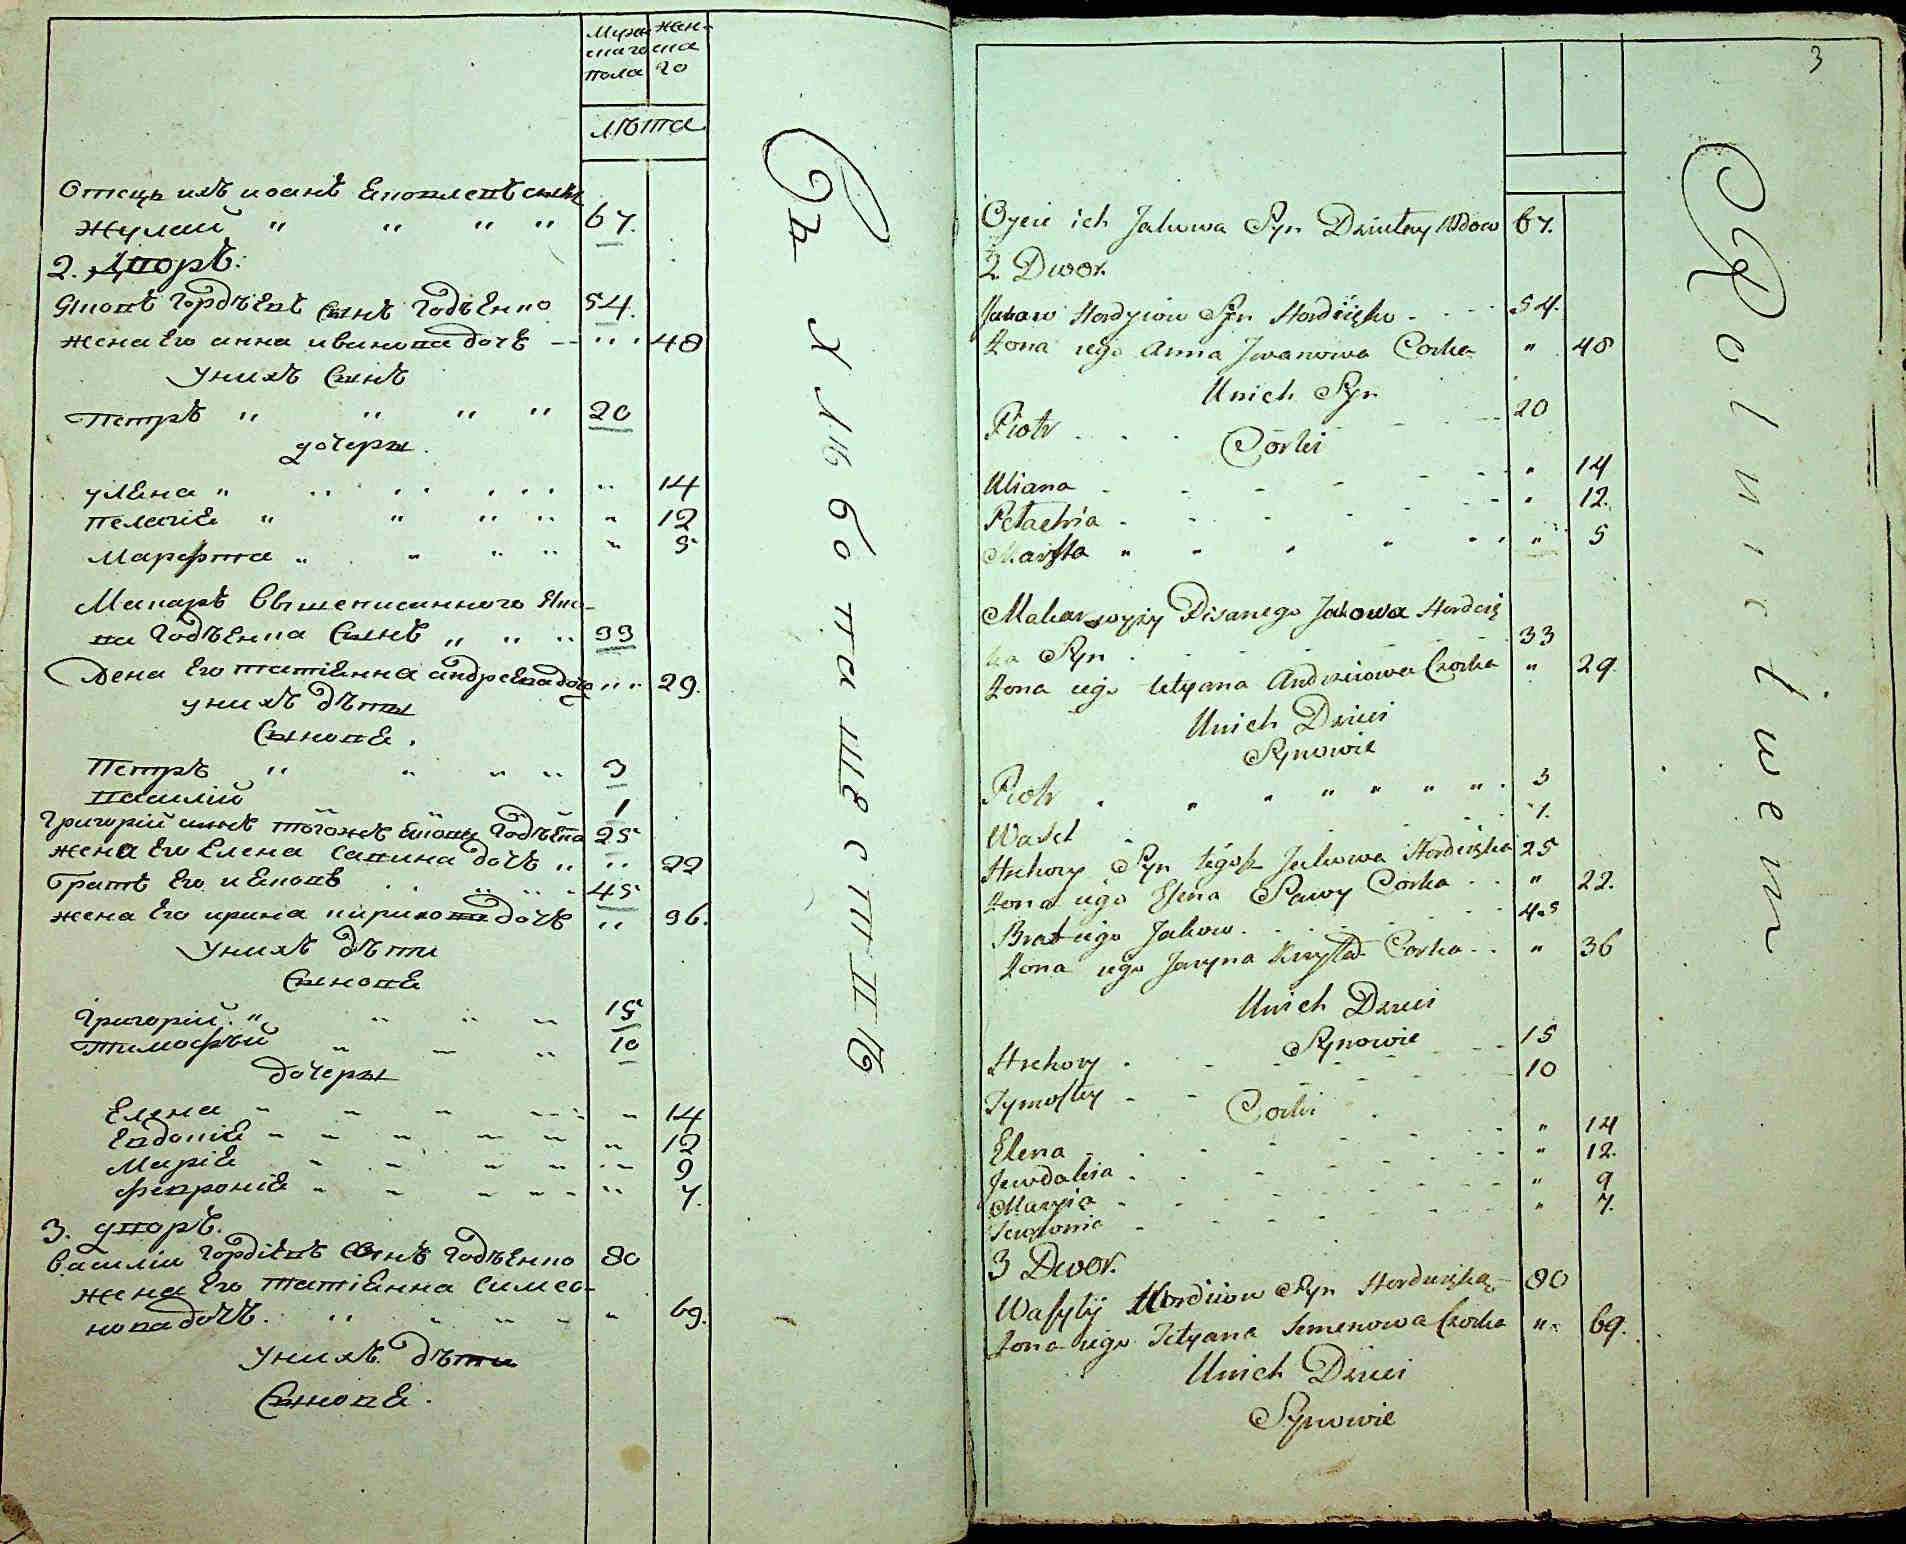 Мужескаго пола
Женскаго
лѣта
Отецъ ихъ иоанъ
Жулай " " " " 67.
2. Дворъ:
Яковъ Гордѣевъ сынъ Годѣенко 54.
жена его анна иванова дочь - - " " 48
у нихъ сынъ
Петръ " " " " 20
дочеры
улѣна " " 14
пелагиѣ " " " " " 12
Марфта " " " " " 5
Макаръ вышеписанного Яко-
ва Годѣенка сынъ " " " 33
Жена его татіѣнна андреева дочь " " 29.
у нихъ дѣты
Сыновѣ.
Петръ " " " " 3
Василій 1
Григорій сынъ тогожъ Якова Годѣенка 25
жена его Елена савина дочь " " 22
братъ его иѣковъ 45
жена его ирина кирилова дочь " 36.
у нихъ дѣти
Сыновѣ
Григорій " 15
Тимофѣй 10
дочеры
Елена 14
Евдокиѣ 12
Мариѣ 9
Февронiѣ 7.
3. дворъ.
Василіи Гордіѣвъ сынъ Годѣенко 80
жена его татіѣнна симео-
нова дочь. 69.
у нихъ дѣти
Сыновѣ.
Съ хлѣбопашествѣ
3
Oycie ich Jakowa Syn Wdow 67.
2 Dwor.
Jakow Hordyiow Syn Hordiięko 54.
Żona iego Anna Jwanowa Corka " 48
Unich Syn
Piotr 20
Corki
Uliana " 14
Pełaehia " 12.
Marfta " " " " " 5
Makar wyży Pisanego Jakowa Hordeię
ka Syn 33
Żona iego tetyana Andreiowa Czorka " 29.
Unich Dzieci
Synowie
Piotr " " " " " " 3
Wasel 1.
Hrehory Syn tegoż Jakowa Hordeięka 25
Żona iego Elena Sawy Corka " 22.
Brat iego Jakow 45
Żona iego Jaryna Kiryła Corka " 36
Unich Dzieci
Synowie
Hrehory 15
Tymoftey 10
Corki
Elena " 14
Jewdakia " 12.
Maryia " 9
" 7.
3 Dwor.
Wasylij Hordiiow Syn Hordieięko 80
Żona iego Tetyana Semenowa Czorka " 69.
Unich Dzieci
Synowie
Rolnictwem